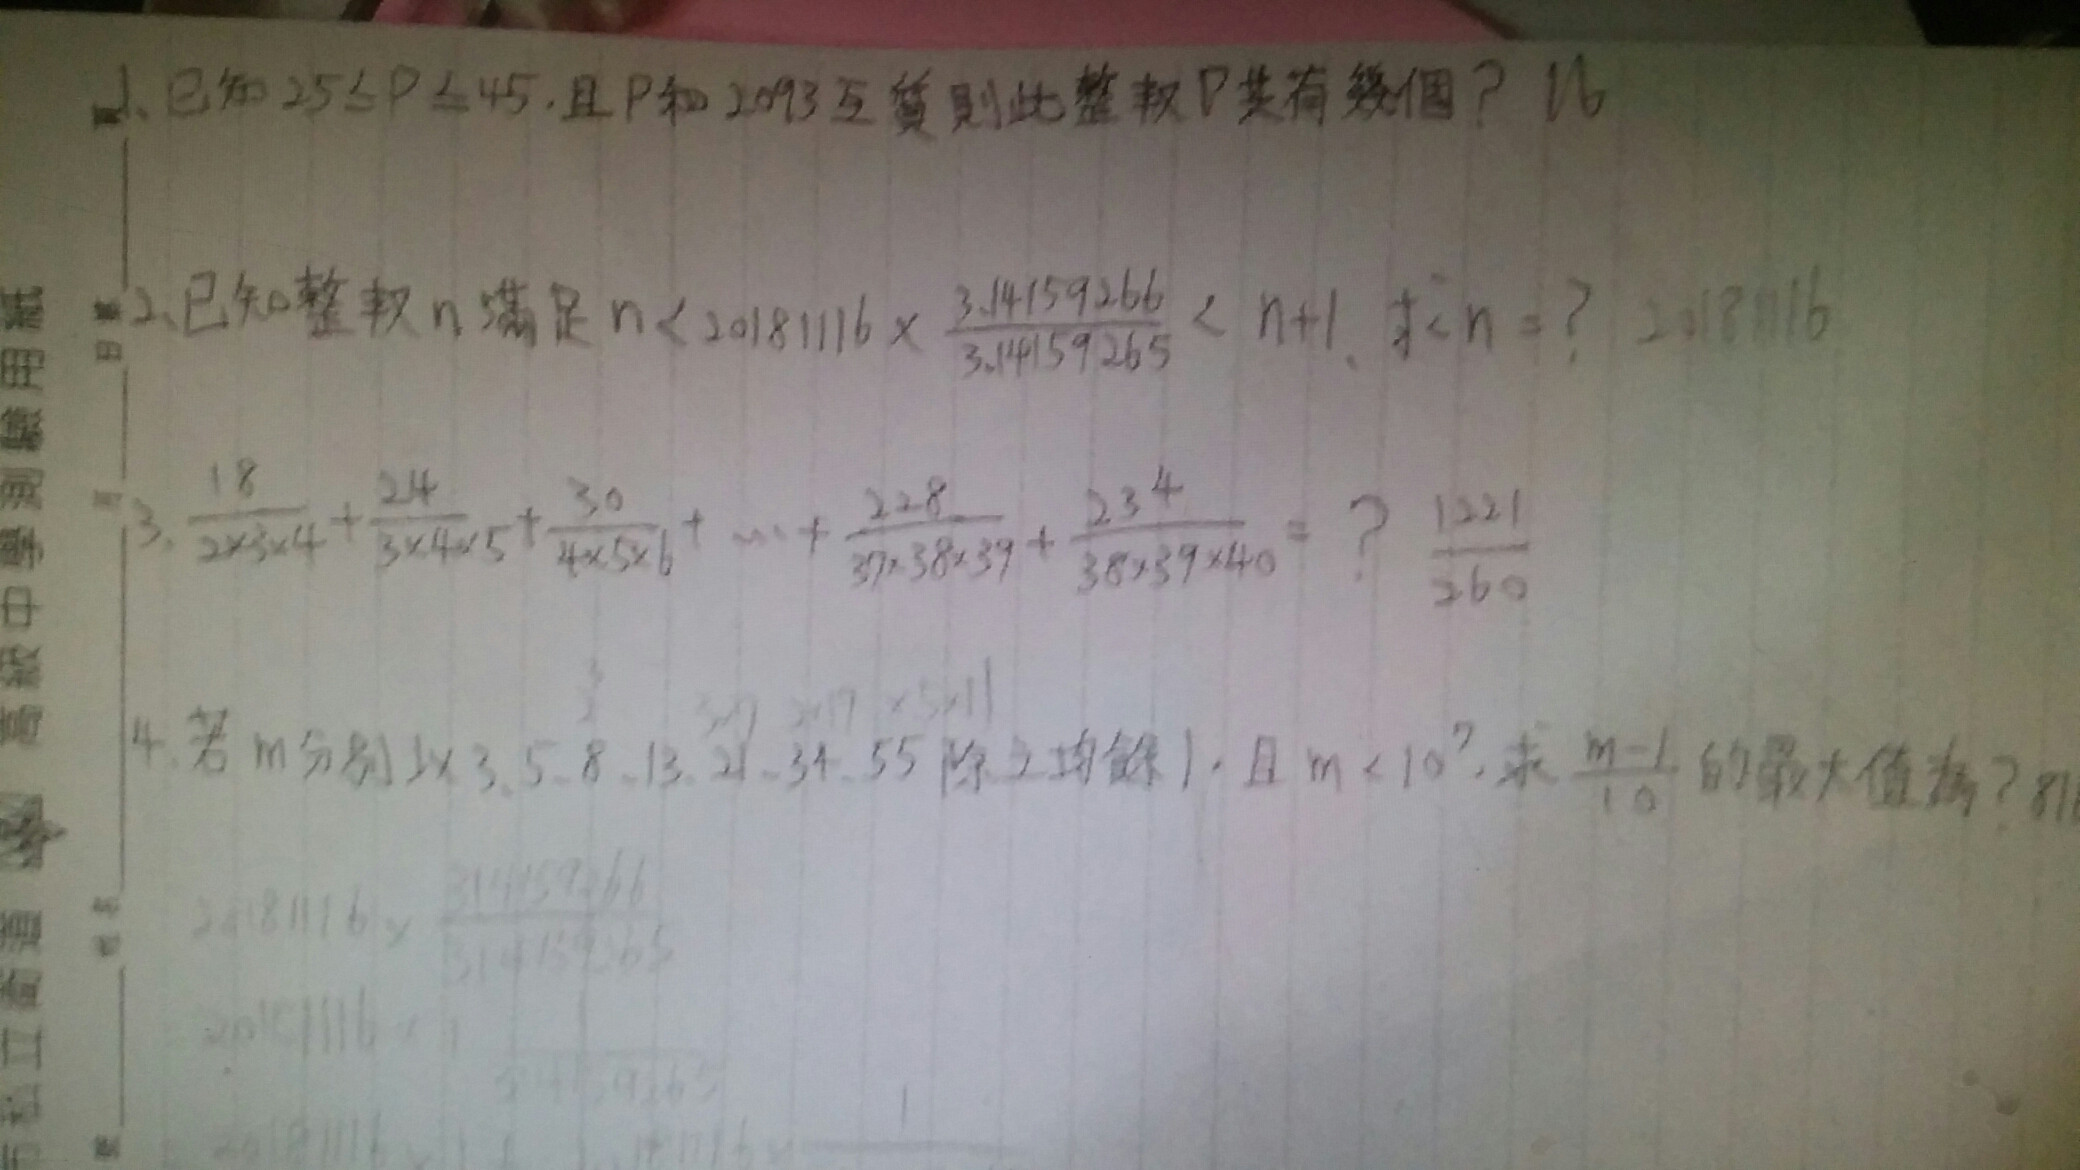 1、已知25≤P≤45.且P和2093互質則此整數P共有幾個? 16
2、已知整數n滿足n<20181116×3.14159266/3.14159265<n+1、求n=? 20181116
3、18/2×3×4+24/3×4×5+30/4×5×6+…+228/37×38×39+234/38×39×40=? 1221/260
3×7 2×17 ×5×11
4、若m分別以3、5、8、13、21、34、55除之均餘1,且m<10⁷,求m-1/10的最大值為? 816
20181116×314159266/314159265
20181116×1 1/314159265
20181116×1+ 20181116× 1